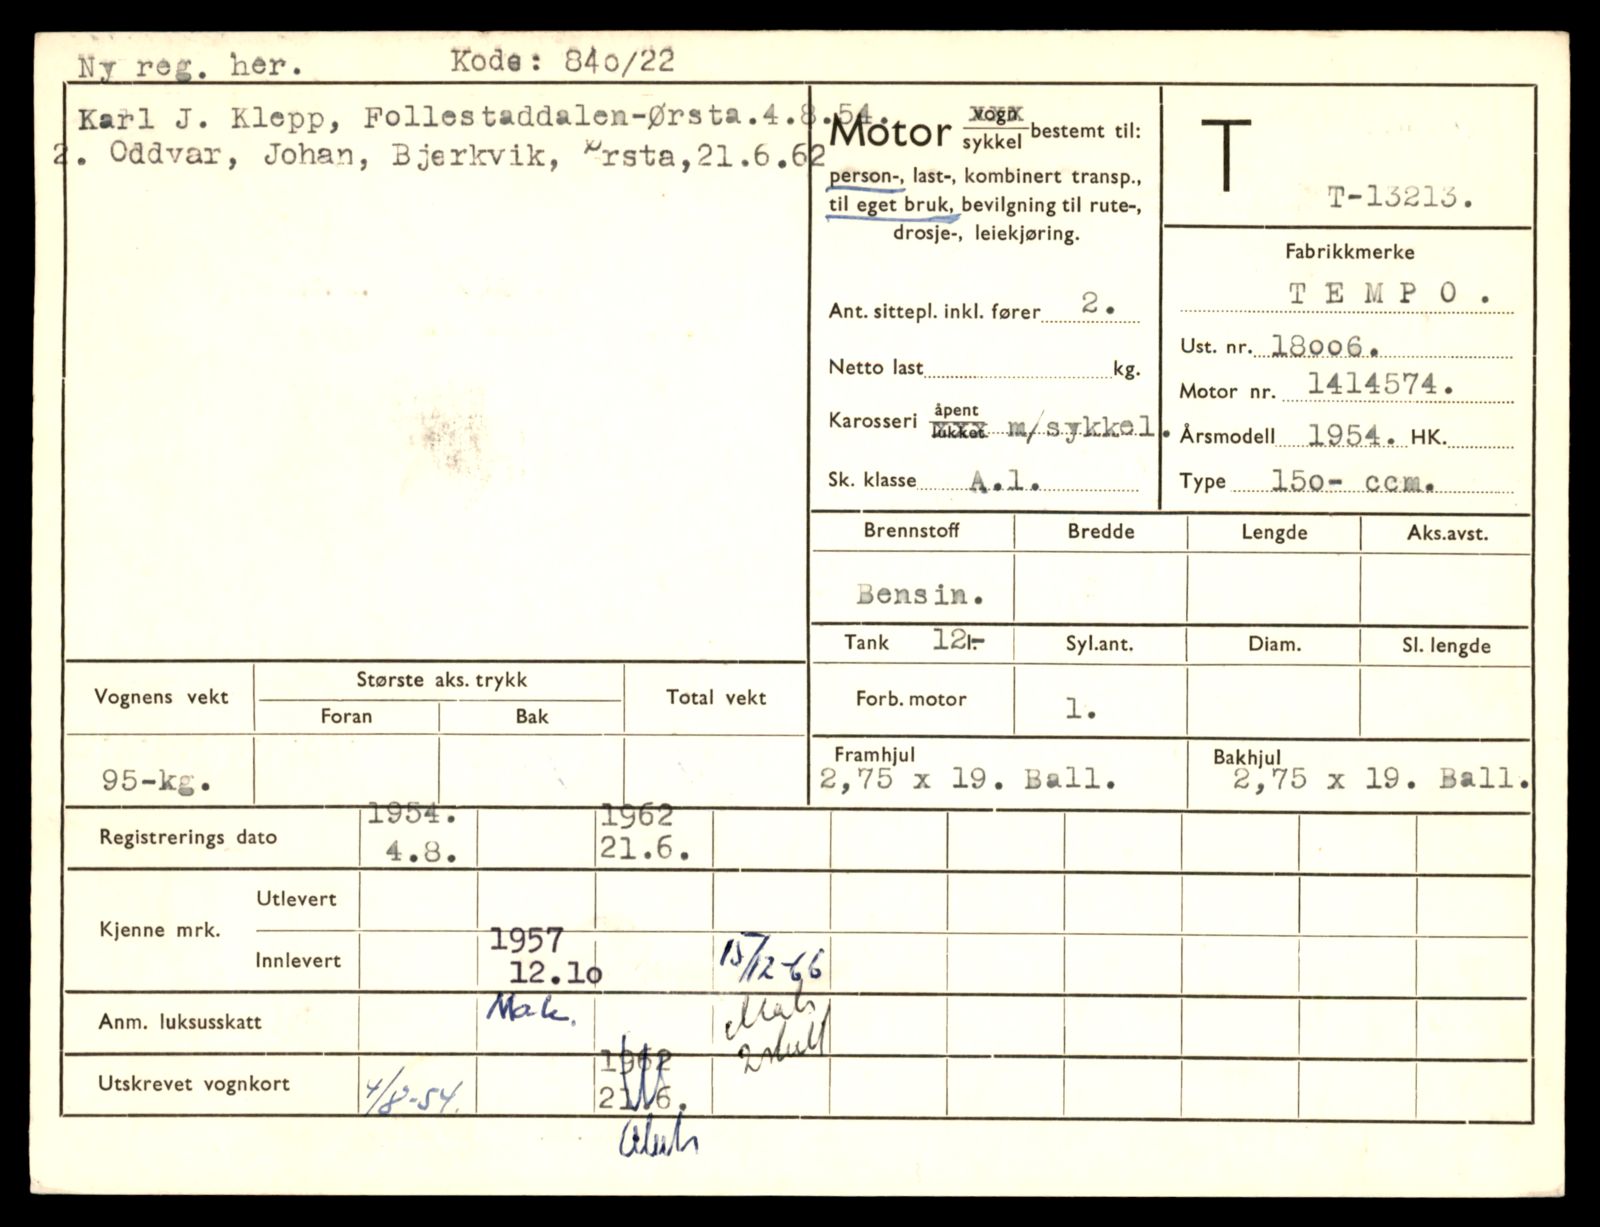 Ny reg. her. Kode: 84o/22
Karl J. Klepp, Follestaddalen-Ørsta.4.8.54.
2. Oddvar, Johan, Bjerkvik, Ørsta,21.6.62
Motor vogn sykkel bestemt til:
person-, last-, kombinert transp.,
til eget bruk, bevilgning til rute-,
drosje-, leiekjøring.
Ant. sittepl. inkl. fører 2.
Netto last kg.
Karosseri åpent lukket m/sykkel.
Sk. klasse A.1.
T
T-13213.
Fabrikkmerke
T E M P O .
Ust. nr. 18oo6.
Motor nr. 1414574.
Årsmodell 1954. HK.
Type 15o- ccm.
Brennstoff Bredde Lengde Aks.avst.
Bensin.
Tank 12l.- Syl.ant. Diam. Sl. lengde
Forb. motor 1.
Vognens vekt Største aks. trykk Total vekt
Foran Bak
95-kg.
Framhjul Bakhjul
2,75 x 19. Ball. 2,75 x 19. Ball.
1954. 1962
Registrerings dato 4.8. 21.6.
Kjenne mrk.
Utlevert
Innlevert 1957 15/12-66
12.1o
Anm. luksusskatt Mak.
1962
Utskrevet vognkort 4/8-54. 21.6.